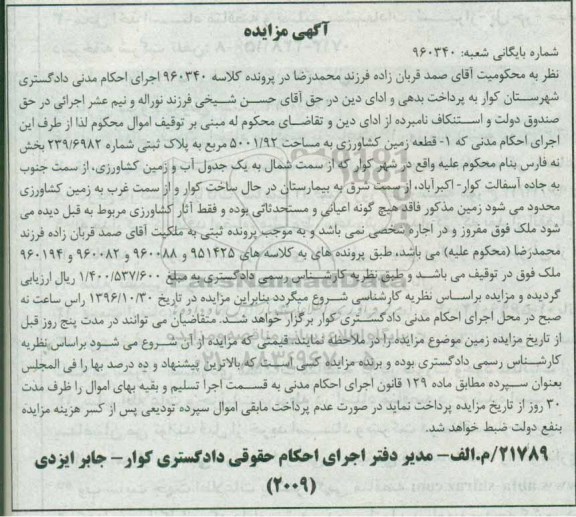 آگهی مزایده
شماره بایگانی شعبه: ۹۶۰۳۴۰
نظر به محکومیت آقای صمد قربان زاده فرزند محمدرضا در پرونده کلاسه ۹۶۰۳۴۰ اجرای احکام مدنی دادگستری
شهرستان کوار به پرداخت بدهی و ادای دین در حق آقای حسن شیخی فرزند نوراله و نیم عشر اجرائی در حق
صندوق دولت و استنکاف نامبرده از ادای دین و تقاضای محکوم له مبنی بر توقیف اموال محکوم لذا از طرف این
اجرای احکام مدنی که ۱- قطعه زمین کشاورزی به مساحت ۵۰۰۱/۹۲ مربع به پلاک ثبتی شماره ۲۳۹/۶۹۸۲ بخش
نه فارس بنام محکوم علیه واقع در شهر کوار که از سمت شمال به یک جدول آب و زمین کشاورزی، از سمت جنوب
به جاده آسفالت کوار- اکبرآباد، از سمت شرق به بیمارستان در حال ساخت کوار و از سمت غرب به زمین کشاورزی
محدود می شود زمین مذکور فاقد هیچ گونه اعیانی و مستحدثاتی بوده و فقط آثار کشاورزی مربوط به قبل دیده می
شود ملک فوق مفروز و در اجاره شخصی نمی باشد و به موجب پرونده ثبتی به ملکیت آقای صمد قربان زاده فرزند
محمدرضا (محکوم علیه) می باشد، طبق پرونده های به کلاسه های ۹۵۱۴۲۵ و ۹۶۰۰۸۸ و ۹۶۰۰۸۲ و ۹۶۰۱۹۴
ملک فوق در توقیف می باشد و طبق نظریه کارشناس رسمی دادگستری به مبلغ ۱/۴۰۰/۵۳۷/۶۰۰ ریال ارزیابی
گردیده و مزایده براساس نظریه کارشناسی شروع میگردد بنابراین مزایده در تاریخ ۱۳۹۶/۱۰/۳۰ راس ساعت نه
صبح در محل اجرای احکام مدنی دادگستری کوار برگزار خواهد شد. متقاضیان می توانند در مدت پنج روز قبل
از تاریخ مزایده زمین موضوع مزایده را در ملاحظه نمایند. قیمتی که مزایده از آن شروع می شود براساس نظریه
کارشناس رسمی دادگستری بوده و برنده مزایده کسی است که بالاترین پیشنهاد و ده درصد بها را فی المجلس
بعنوان سپرده مطابق ماده ۱۲۹ قانون اجرای احکام مدنی به قسمت اجرا تسلیم و بقیه بهای اموال را ظرف مدت
۳۰ روز از تاریخ مزایده پرداخت نماید در صورت عدم پرداخت مابقی اموال سپرده تودیعی پس از کسر هزینه مزایده
بنفع دولت ضبط خواهد شد.
۲۱۷۸۹/م.الف- مدیر دفتر اجرای احکام حقوقی دادگستری کوار- جابر ایزدی
(۲۰۰۹)